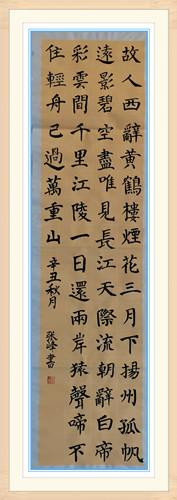 故人西辭黃鶴樓煙花三月下揚州孤帆
遠影碧空盡唯見長江天際流朝辭白帝
彩雲間千里江陵一日還兩岸猿聲啼不
住輕舟已過萬重山
辛丑秋月
張峰書